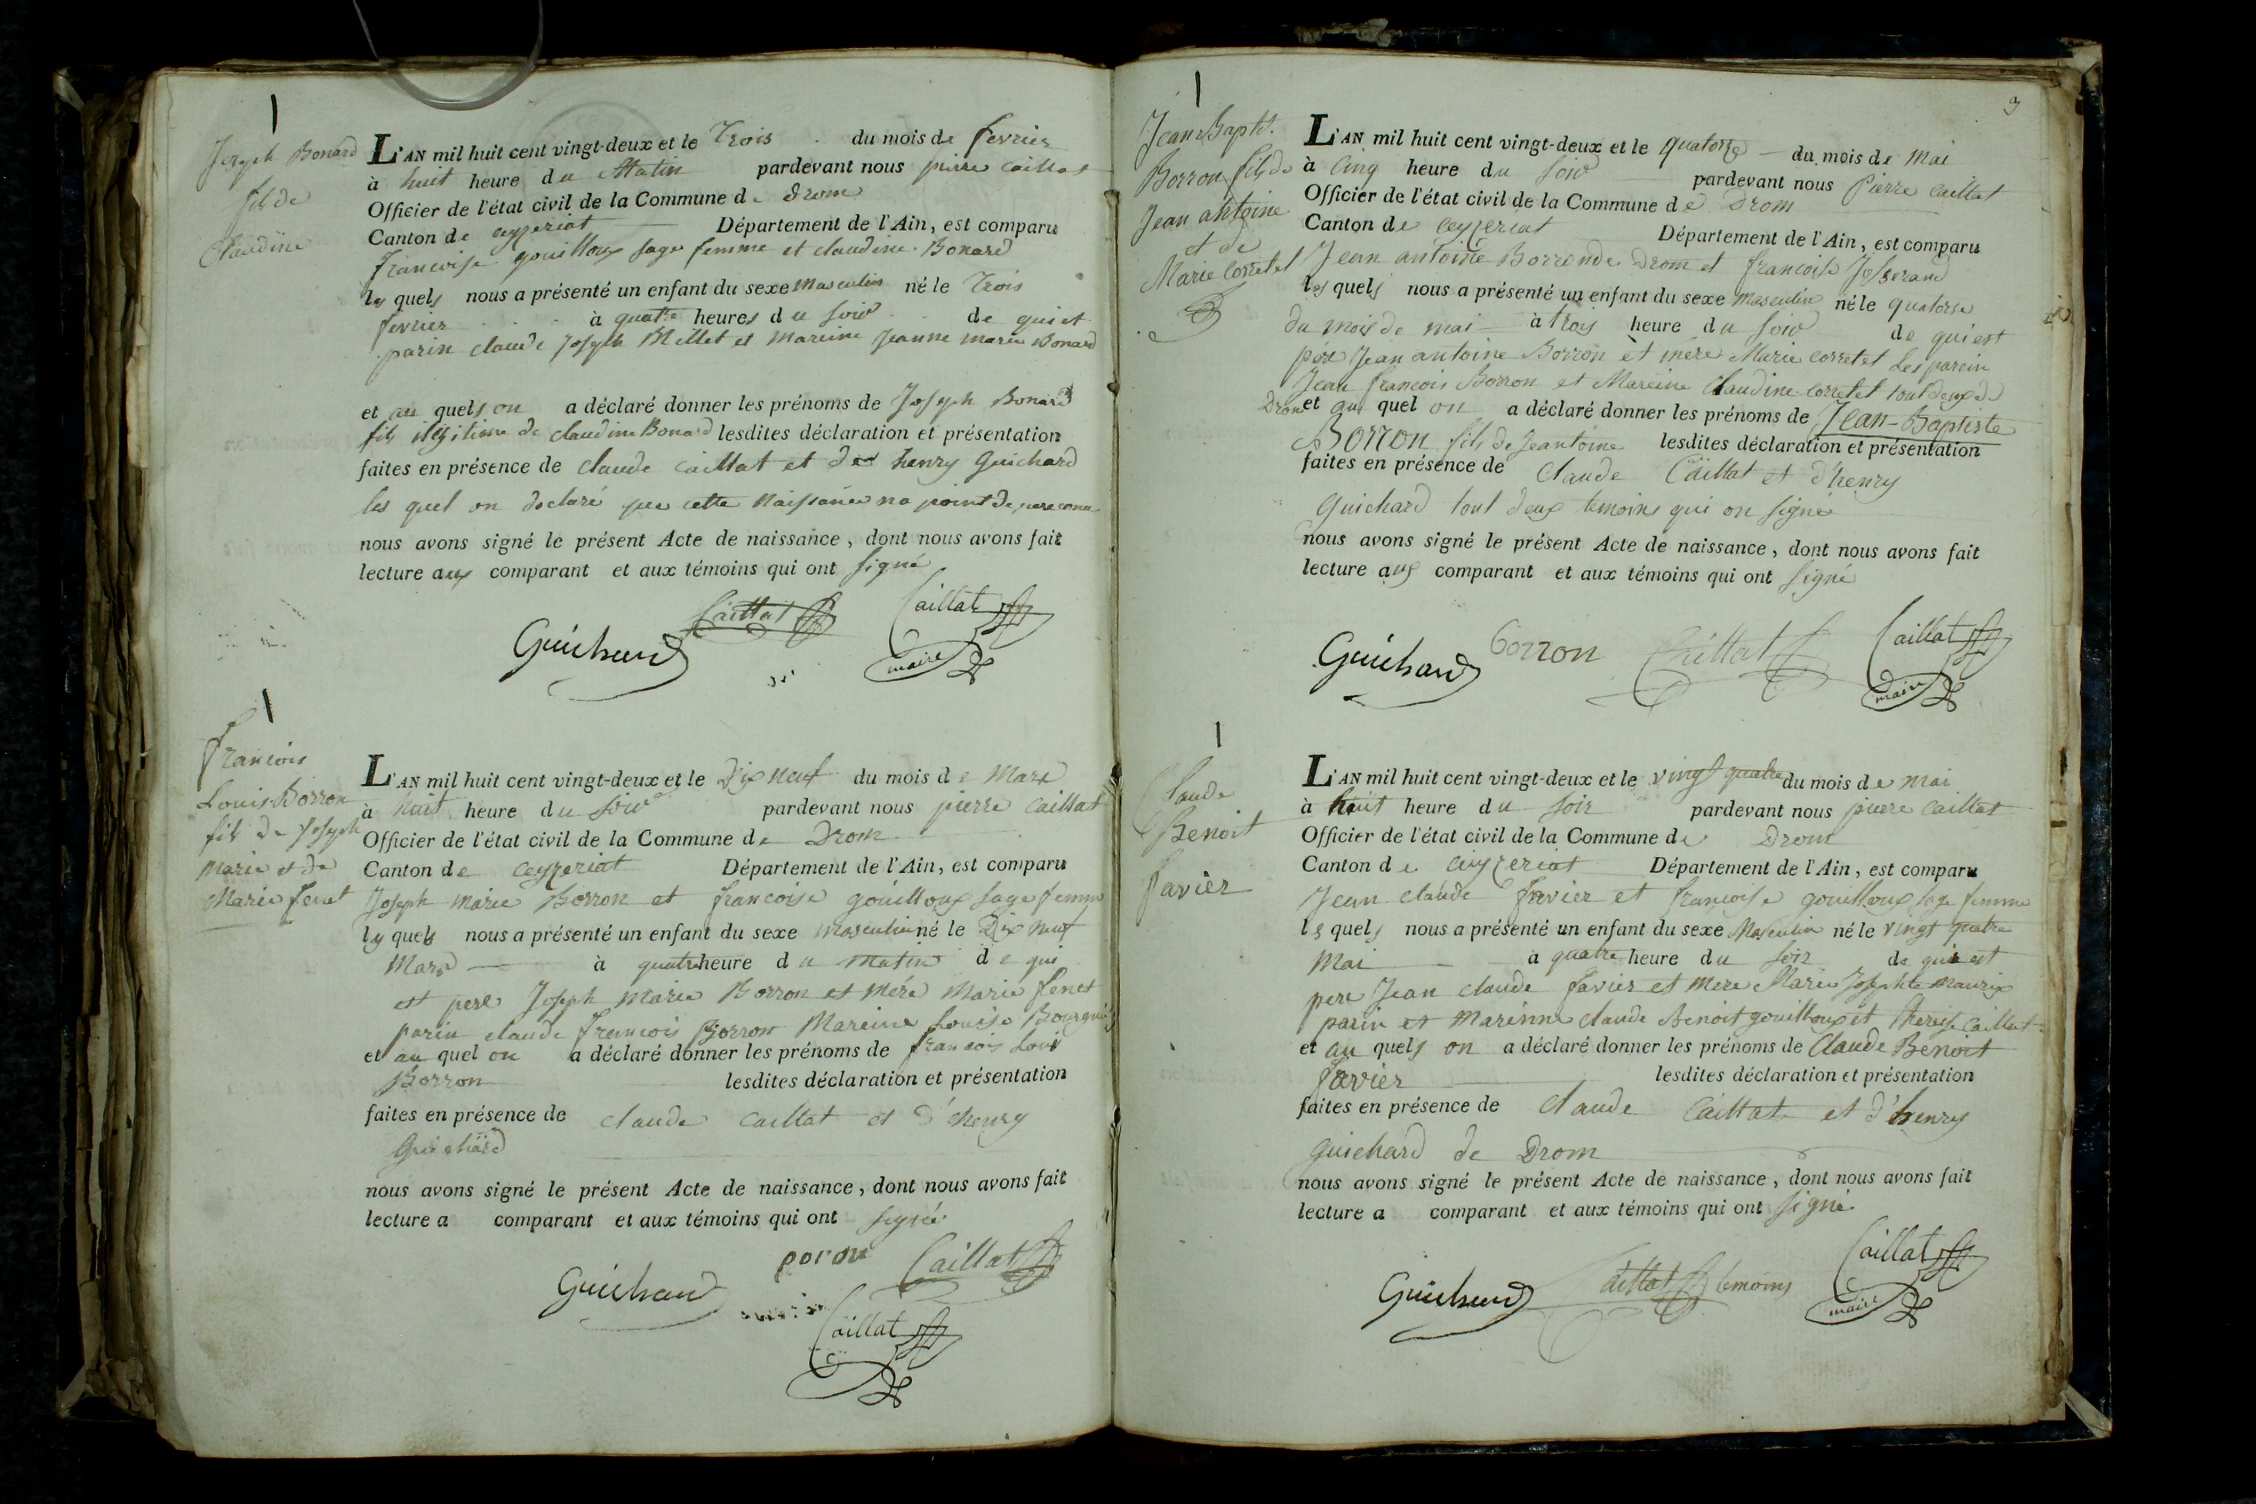 Joseph Bonard
fils de
Claudine
L'AN mil huit cent vingt-deux et le Trois du mois de fevrier
à huit heure du Matin pardevant nous pierre Caillat
Officier de l'état civil de la Commune de Drom
Canton de ceyzeriat Département de l'Ain, est comparu
francoise gouilloux sage femme et claudine Bonard
les quels nous a présenté un enfant du sexe Masculin né le Trois
fevrier à quatre heures du soir de qui et
parin claude Joseph Millet et mareine Jeanne marie Bonard
et au quels on a déclaré donner les prénoms de Joseph Bonard
fils ilegitime de claudine Bonard lesdites déclaration et présentation
faites en présence de claude caillat et de henry Guichard
les quel on declaré que cette Naissance na point de pere conu
nous avons signé le présent Acte de naissance, dont nous avons fait
lecture aux comparant et aux témoins qui ont signé
Guichard Caillat Caillat
maire
francois
Louis Borron
fils de Joseph
Marie et de
Marie fenet
L'AN mil huit cent vingt-deux et le Dix neuf du mois de Mars
à huit heure du soir pardevant nous pierre Caillat
Officier de l'état civil de la Commune de Drom
Canton de ceyzeriat Département de l'Ain, est comparu
Joseph marie Borron et francoise gouilloux sage femme
les quels nous a présenté un enfant du sexe masculin né le Dix neuf
Mars à quatre heure du matin de qui
est pere Joseph Marie Borron et mére Marie fenet
parin claude francois Borron Mareine Louise
et au quel on a déclaré donner les prénoms de francois Loui
Borron lesdites déclaration et présentation
faites en présence de claude caillat et d'henry
Guichard
nous avons signé le présent Acte de naissance, dont nous avons fait
lecture a comparant et aux témoins qui ont signé
Guichard poron Caillat
Caillat
3
Jean Bapte.
Borron fils de
Jean antoine
et de
Marie Corretet
L'AN mil huit cent vingt-deux et le quatorze du mois de Mai
à Cinq heure du soir pardevant nous Pierre Caillat
Officier de l'état civil de la Commune de Drom
Canton de ceyzeriat Département de l'Ain, est comparu
Jean antoine Borron de Drom et francoise Josserand
les quels nous a présenté un enfant du sexe Masculin né le quatorse
du mois de mai à trois heure du soir de qui est
pére Jean antoine Borron et mére Marie corretet Les parein
Jean francois Borron et Mareine Claudine corretet tout deux de
Drom et au quel on a déclaré donner les prénoms de Jean-Baptiste
Borron fils de Jeantoine lesdites déclaration et présentation
faites en présence de Claude Caillat et d'henry
Guichard tout deux temoins qui on signé
nous avons signé le présent Acte de naissance, dont nous avons fait
lecture aux comparant et aux témoins qui ont signé
Guichard borron Caillat Caillat
maire
Claude
Benoit
favier
L'AN mil huit cent vingt-deux et le vingt quatre du mois de mai
à huit heure du soir pardevant nous pierre Caillat
Officier de l'état civil de la Commune de Drom
Canton de ceyzeriat Département de l'Ain, est comparu
Jean claude favier et francoise gouilloux sage femme
les quels nous a présenté un enfant du sexe Masculin né le vingt quatre
Mai à quatre heure du soir de qui est
pere Jean claude favier et mere Marie Josephte maurix
parin et Marénne claude Benoit gouilloux et therese Caillat
et au quels on a déclaré donner les prénoms de Claude Benoit
favier lesdites déclaration et présentation
faites en présence de claude Caillat et d'henry
guichard de Drom
nous avons signé le présent Acte de naissance, dont nous avons fait
lecture a comparant et aux témoins qui ont signé
Guichard Caillat temoins Caillat
maire